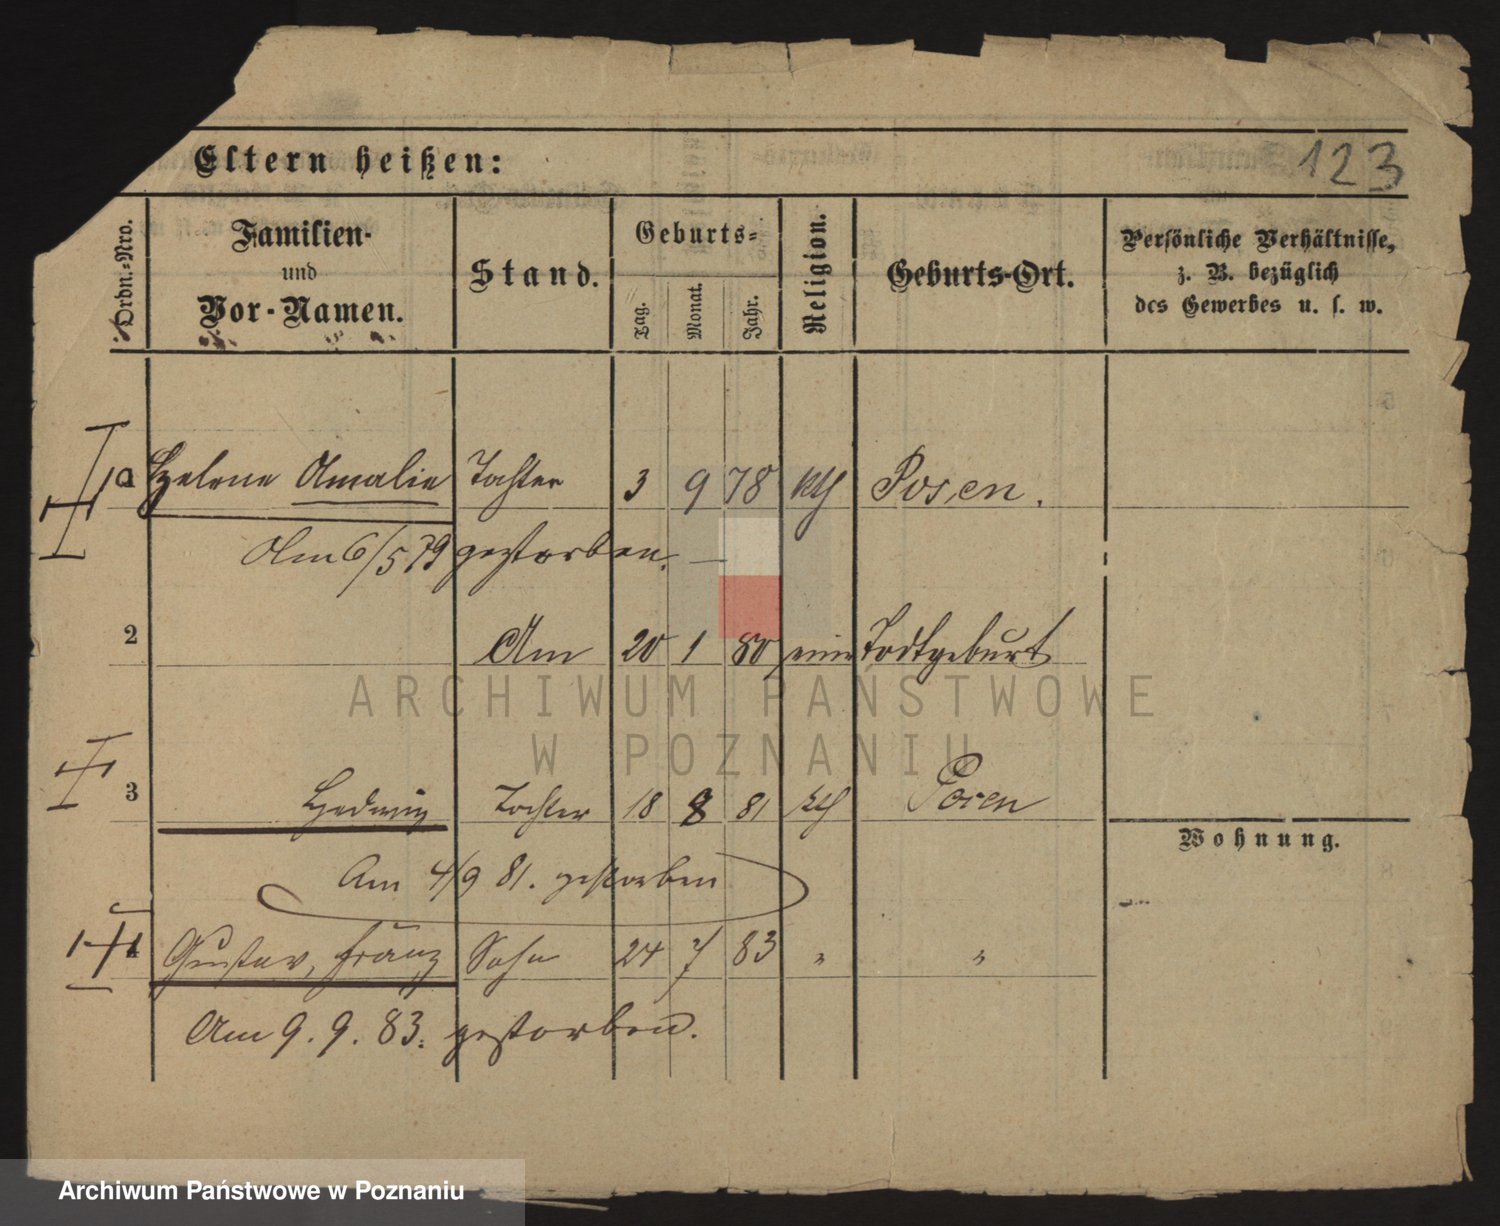 Eltern heißen:
123
Ordn.-Nro.
Familien-
und
Vor-Namen.
Stand.
Geburts-
Tag.
Monat.
Jahr.
Religion.
Geburts-Ort.
Persönliche Verhältnisse,
z. B. bezüglich
des Gewerbes u. s. w.
Helene Amalie Tochter 3 9 78 kth Posen.
Am 6/5 79 gestorben. —
2 Am 20 1 80 eine Todtgeburt
ARCHIWUM PAŃSTWOWE
W POZNANIU
3 Hedwig Tochter 18 8 81 kth Posen
Wohnung.
Am 4/9 81. gestorben
4 Gustav, Franz Sohn 24 7 83 " "
Am 9. 9. 83. gestorben.
Archiwum Państwowe w Poznaniu